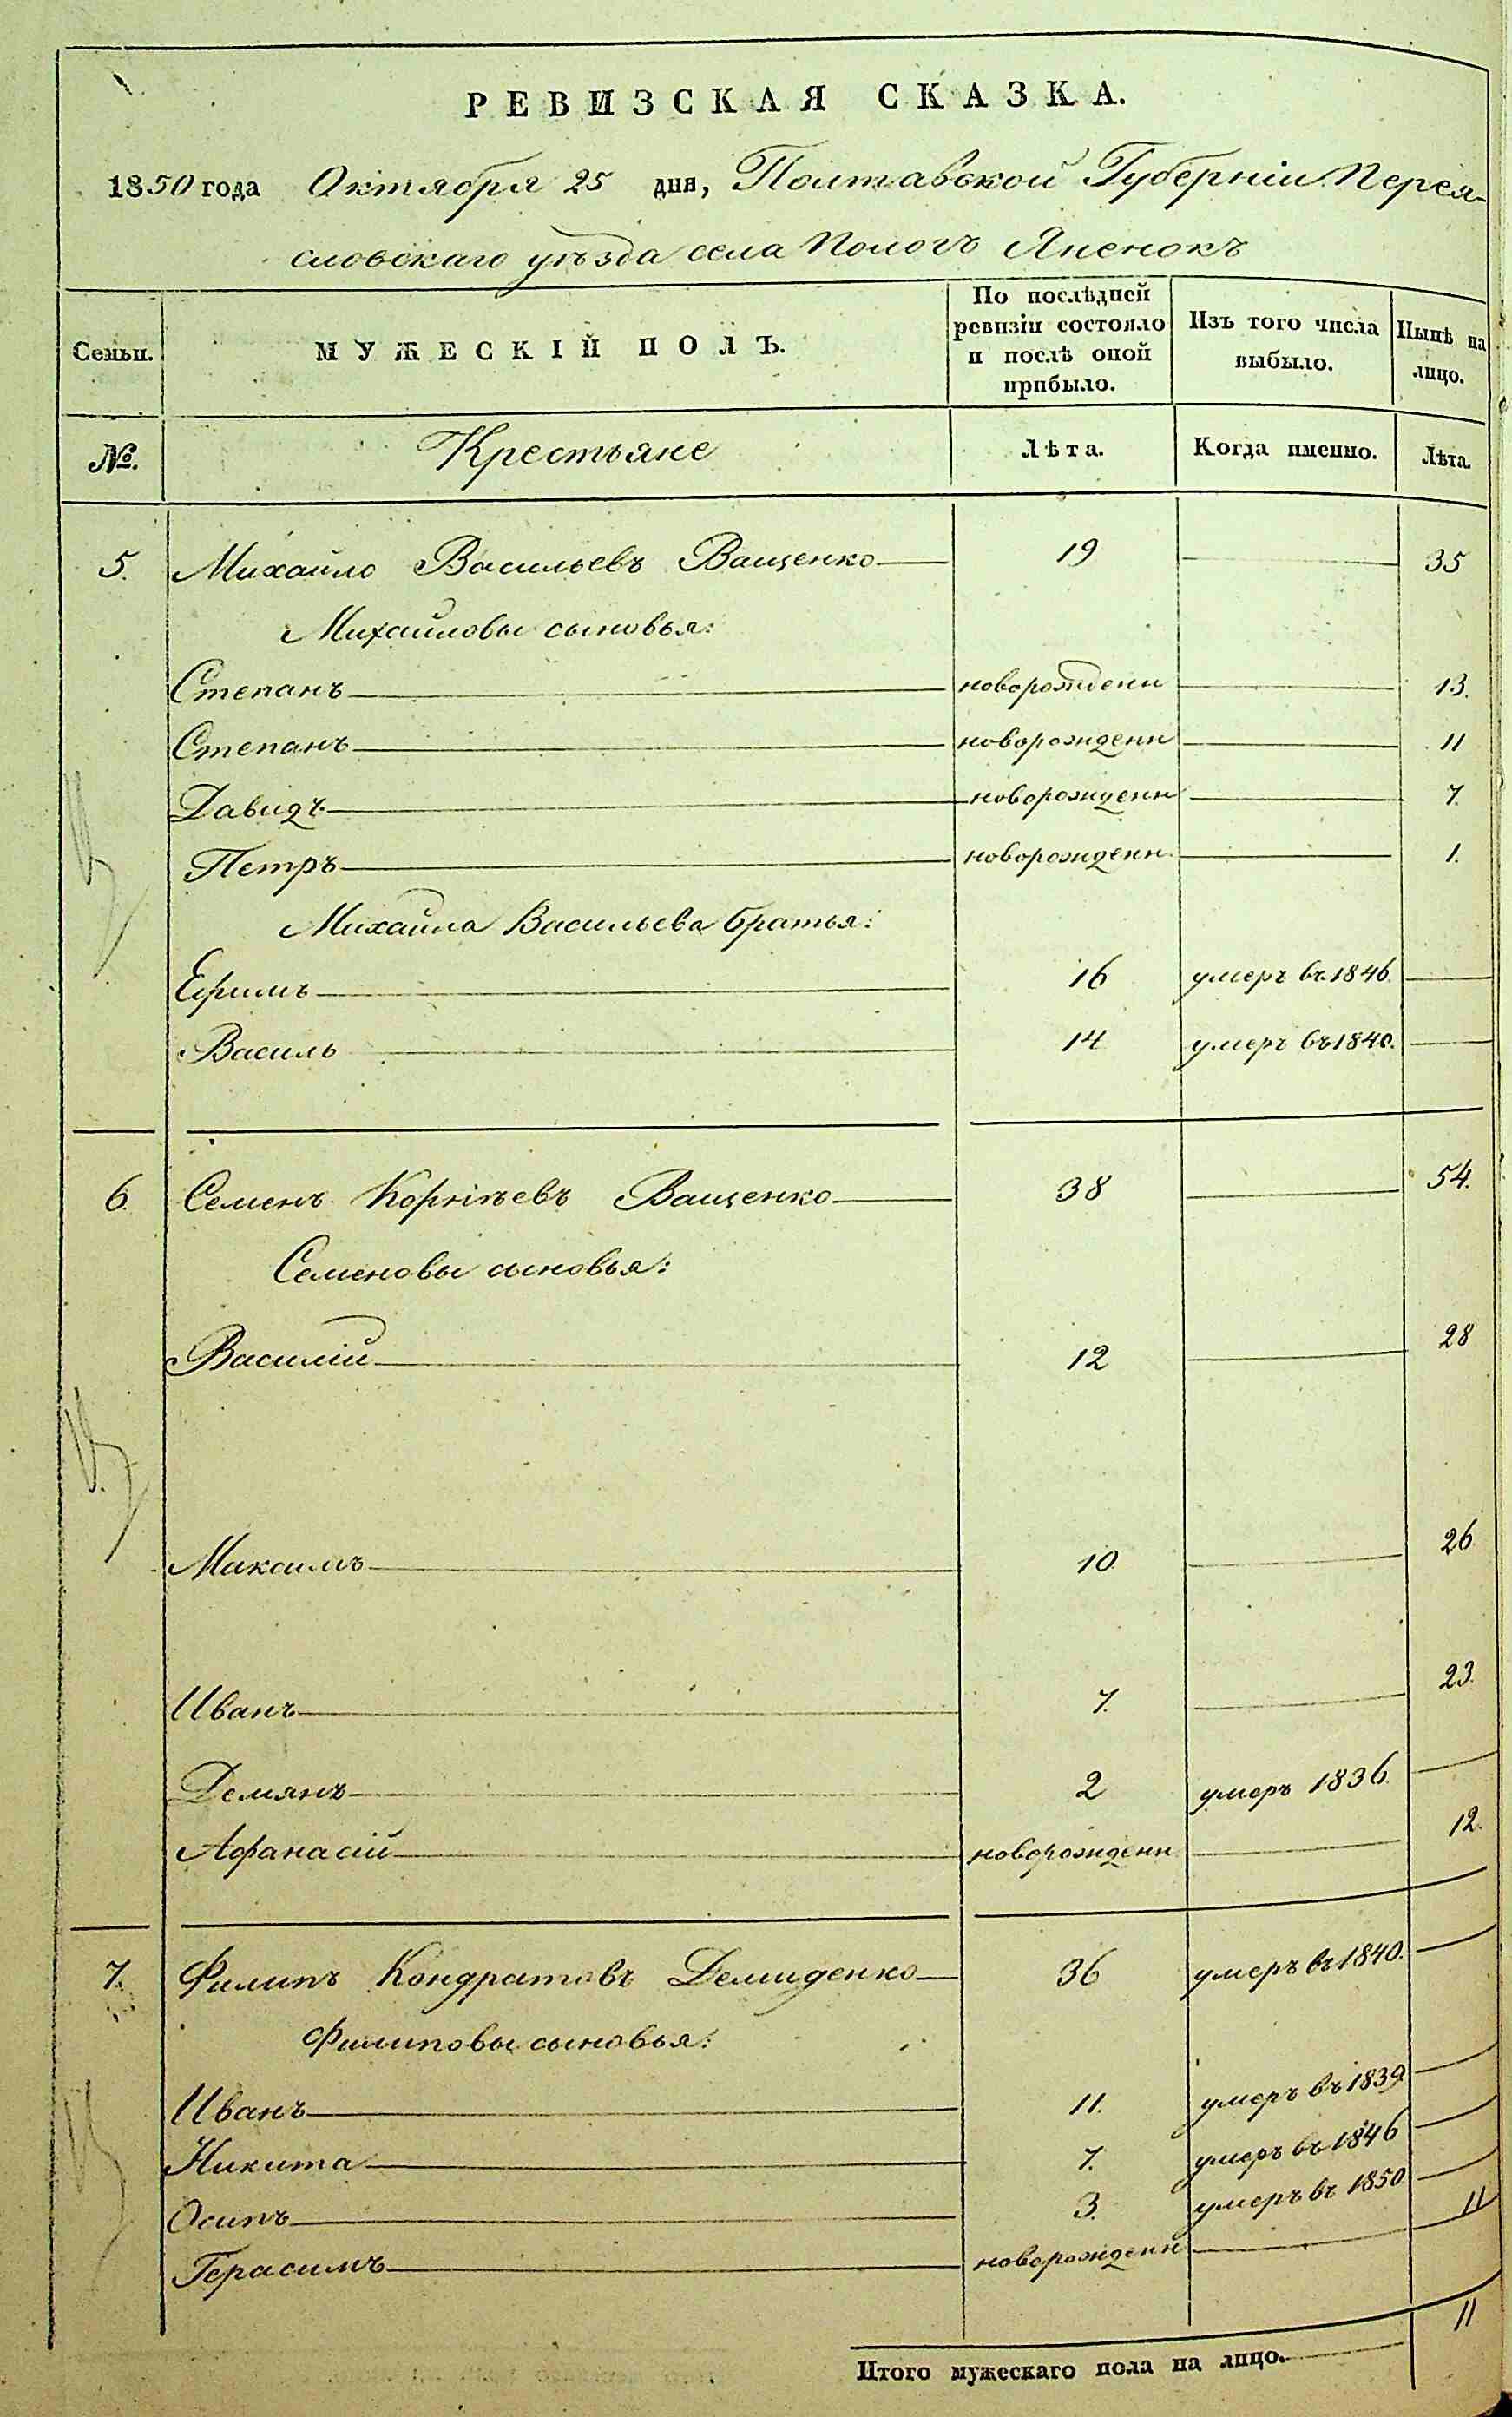 РЕВИЗСКАЯ СКАЗКА.
1850 года Октября 25 дня, Полтавской Губерніи Перея-
словскаго уѣзда села Пологъ Яненокъ
Семьи. МУЖЕСКІЙ ПОЛЪ. По послѣдней ревизіи состояло и послѣ оной прибыло. Изъ того числа выбыло. Нынѣ на лицо.
№. Крестьяне Лѣта. Когда именно. Лѣта.
5. Михайло Васильевъ Ващенко 19 35
Михайловы сыновья:
Степанъ новорожденн 13.
Степанъ новорожденн 11
Давидъ новорожденн 7.
Петръ новорожденн. 1.
Михайла Васильева братья:
Ефимъ 16 умеръ въ 1846.
Василь 14 умеръ въ 1840.
6. Семенъ Корнѣевъ Ващенко 38 54.
Семеновы сыновья:
Василій 12 28
Максимъ 10. 26
Иванъ 7. 23.
Демянъ 2 умеръ 1836.
Афанасій новорожденн 12.
7. Филипъ Кондратовъ Демиденко 36 умеръ въ 1840.
Филиповы сыновья:
Иванъ 11. умеръ въ 1839
Никита 7. умеръ въ 1846
Осипъ 3. умеръ въ 1850
Герасимъ новорожденн 11
Итого мужескаго пола на лицо. 11